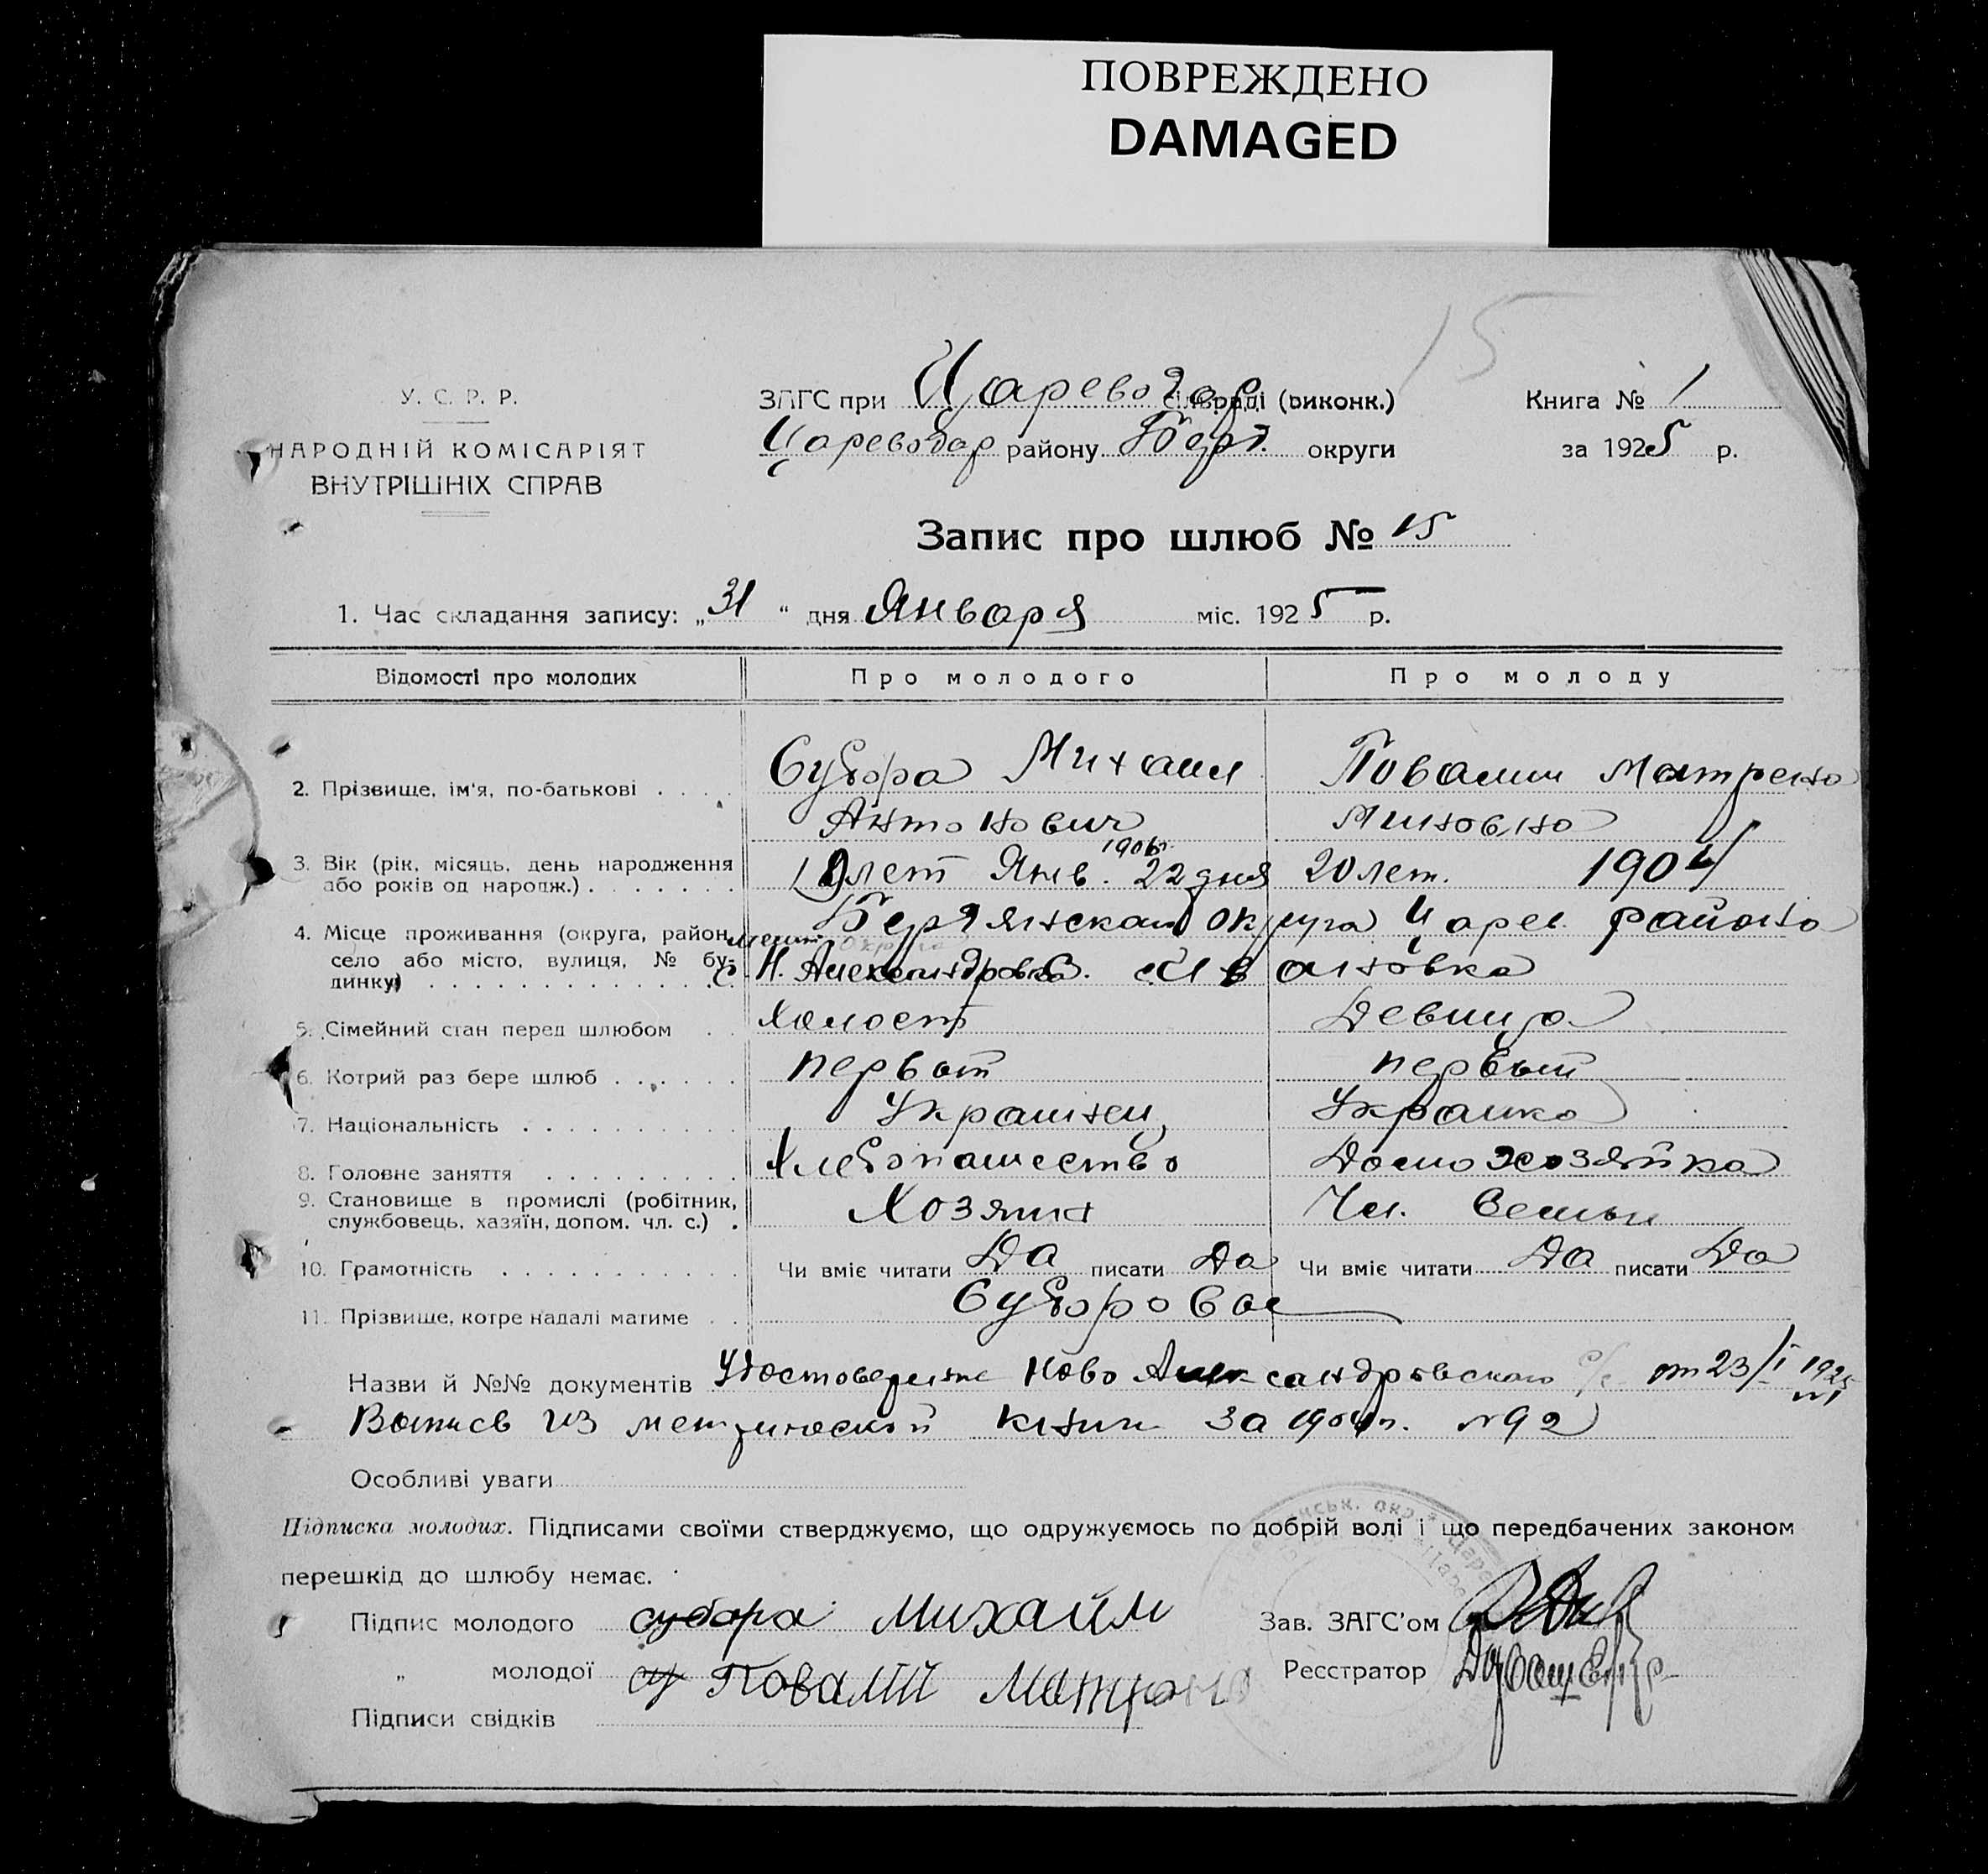 ПОВРЕЖДЕНО
DAMAGED
15
У. С. Р. Р.
НАРОДНІЙ КОМІСАРІЯТ
ВНУТРІШНІХ СПРАВ
ЗАГС при Цареводар сільраді (виконк.)
Цареводар району Берд. округи
Книга № 1
за 1925 р.
Запис про шлюб № 15
1. Час складання запису: „31“ дня Января міс. 1925 р.
Відомості про молодих
Про молодого
Про молоду
2. Прізвище, ім'я, по-батькові . . . .
Субора Михаил
Антонович
Повалий Матрена
Миновна
3. Вік (рік, місяць, день народження
або років од народж.) . . . . . . .
1906г.
18 лет Янв. 22 дня
20 лет. 1904
4. Місце проживання (округа, район,
село або місто, вулиця, № бу-
динку) . . . . . . . . . . . . . .
Бердянская округа Царев. района
с. Н. Александровка. с. Ивановка
5. Сімейний стан перед шлюбом . .
Холост
Девица
6. Котрий раз бере шлюб . . . . . .
первый
первый
7. Національність . . . . . . . . . .
Украинец
Украинка
8. Головне заняття . . . . . . . . .
Хлебопашество
Домохозяйка
9. Становище в промислі (робітник,
службовець, хазяїн, допом. чл. с.) .
Хозяин
Чл. Семьи
10. Грамотність . . . . . . . . . . .
Чи вміє читати Да писати Да
Чи вміє читати Да писати Да
11. Прізвище, котре надалі матиме . .
Суборовы
Назви й №№ документів Удостоверение Ново Александровского с/с от 23/I 1925 №1
Выпись из метрической книги за 1904г. №92
Особливі уваги
Підписка молодих. Підписами своїми стверджуємо, що одружуємось по добрій волі і що передбачених законом
перешкід до шлюбу немає.
Підпис молодого субора Михайил
„ молодої Повалий Матрона
Підписи свідків
Зав. ЗАГС'ом
Реєстратор